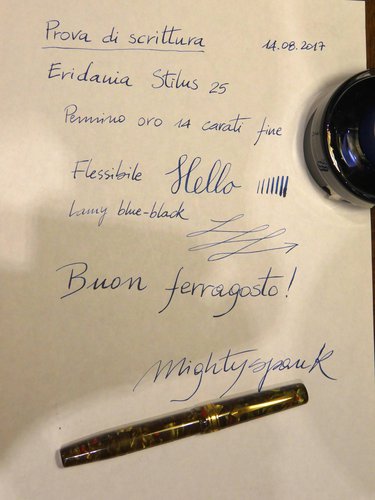 Prova di scrittura 14.08.2017
Eridania Stilus 25
Pennino oro 14 carati fine
Flessibile Hello
Lamy blue-black
Buon ferragosto!
Mightyspank